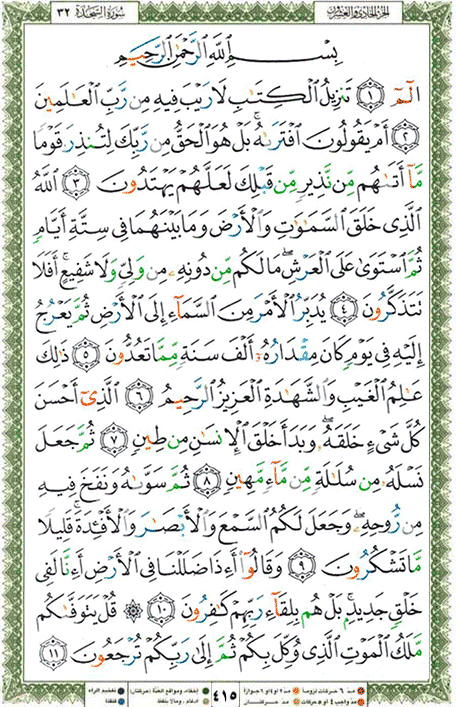 الجزء الحادي والعشرون
سورة السجدة ٣٢
بِسْمِ ٱللَّهِ ٱلرَّحْمَٰنِ ٱلرَّحِيمِ
الٓمٓ ١ تَنزِيلُ ٱلْكِتَٰبِ لَا رَيْبَ فِيهِ مِن رَّبِّ ٱلْعَٰلَمِينَ
٢ أَمْ يَقُولُونَ ٱفْتَرَىٰهُ ۚ بَلْ هُوَ ٱلْحَقُّ مِن رَّبِّكَ لِتُنذِرَ قَوْمًا
مَّآ أَتَىٰهُم مِّن نَّذِيرٍ مِّن قَبْلِكَ لَعَلَّهُمْ يَهْتَدُونَ ٣ ٱللَّهُ
ٱلَّذِى خَلَقَ ٱلسَّمَٰوَٰتِ وَٱلْأَرْضَ وَمَا بَيْنَهُمَا فِى سِتَّةِ أَيَّامٍ
ثُمَّ ٱسْتَوَىٰ عَلَى ٱلْعَرْشِ ۖ مَا لَكُم مِّن دُونِهِۦ مِن وَلِىٍّ وَلَا شَفِيعٍ ۚ أَفَلَا
تَتَذَكَّرُونَ ٤ يُدَبِّرُ ٱلْأَمْرَ مِنَ ٱلسَّمَآءِ إِلَى ٱلْأَرْضِ ثُمَّ يَعْرُجُ
إِلَيْهِ فِى يَوْمٍ كَانَ مِقْدَارُهُۥٓ أَلْفَ سَنَةٍ مِّمَّا تَعُدُّونَ ٥ ذَٰلِكَ
عَٰلِمُ ٱلْغَيْبِ وَٱلشَّهَٰدَةِ ٱلْعَزِيزُ ٱلرَّحِيمُ ٦ ٱلَّذِىٓ أَحْسَنَ
كُلَّ شَىْءٍ خَلَقَهُۥ ۖ وَبَدَأَ خَلْقَ ٱلْإِنسَٰنِ مِن طِينٍ ٧ ثُمَّ جَعَلَ
نَسْلَهُۥ مِن سُلَٰلَةٍ مِّن مَّآءٍ مَّهِينٍ ٨ ثُمَّ سَوَّىٰهُ وَنَفَخَ فِيهِ
مِن رُّوحِهِۦ ۖ وَجَعَلَ لَكُمُ ٱلسَّمْعَ وَٱلْأَبْصَٰرَ وَٱلْأَفْـِٔدَةَ ۚ قَلِيلًا
مَّا تَشْكُرُونَ ٩ وَقَالُوٓا۟ أَءِذَا ضَلَلْنَا فِى ٱلْأَرْضِ أَءِنَّا لَفِى
خَلْقٍ جَدِيدٍۭ ۚ بَلْ هُم بِلِقَآءِ رَبِّهِمْ كَٰفِرُونَ ١٠ ۞ قُلْ يَتَوَفَّىٰكُم
مَّلَكُ ٱلْمَوْتِ ٱلَّذِى وُكِّلَ بِكُمْ ثُمَّ إِلَىٰ رَبِّكُمْ تُرْجَعُونَ ١١
٤١٥